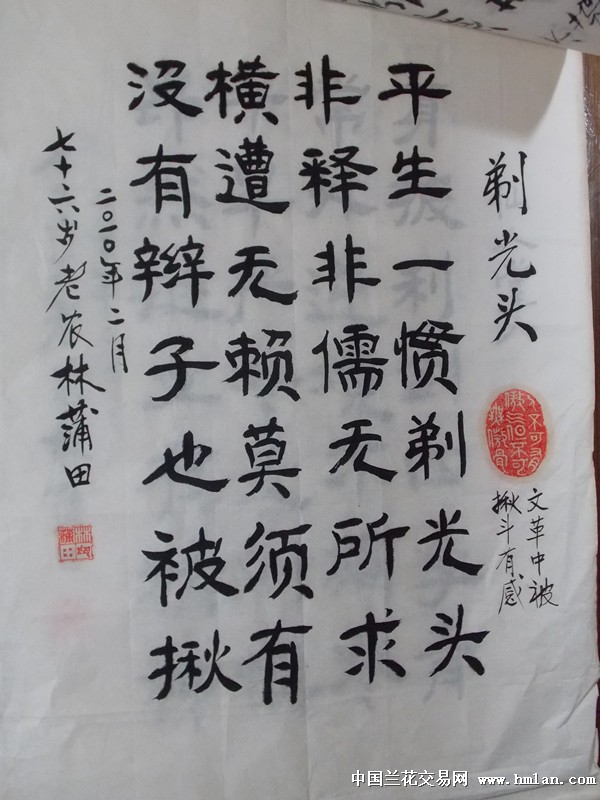 剃光头
文革中被
揪斗有感
平生一惯剃光头
非释非儒无所求
横遭无赖莫须有
没有辫子也被揪
二〇一〇年二月
七十六岁老农林蒲田
中国兰花交易网 www.hmlan.com